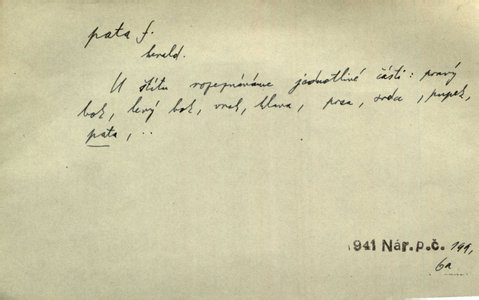 pata f.
herald.
U štítu rozeznáváme jednotlivé části: pravý
bok, levý bok, vrch, hlava, prsa, srdce, pupek,
pata, ..
1941 Nár.p.č. 191,
6a